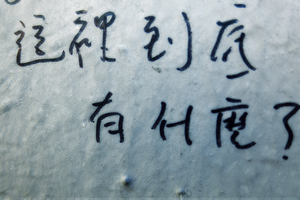 這裡到底
有什麼?